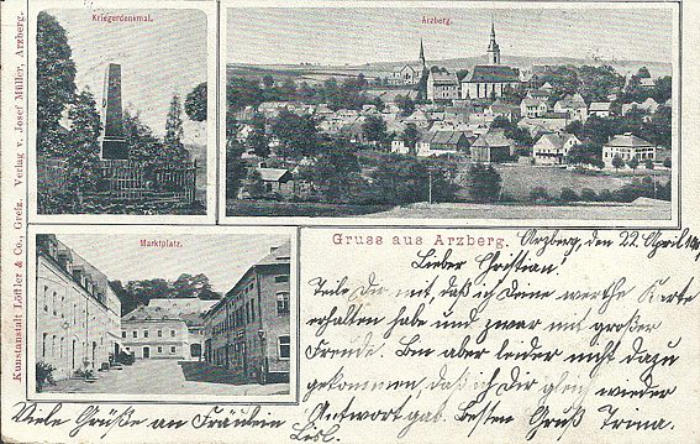 Kriegerdenkmal.
Arzberg.
Marktplatz.
Kunstanstalt Löffler & Co., Greiz. Verlag v. Josef Müller, Arzberg.
Gruss aus Arzberg.
Arzberg, den 22. April
Lieber Christian!
Teile Dir mit, daß ich Deine werthe Karte
erhalten habe und zwar mit großer
Freude. Bin aber leider nicht dazu
gekommen, daß ich Dir gleich wieder
Antwort gab. Besten Gruß Trina.
Viele Grüße an Fräulein
Lisl.